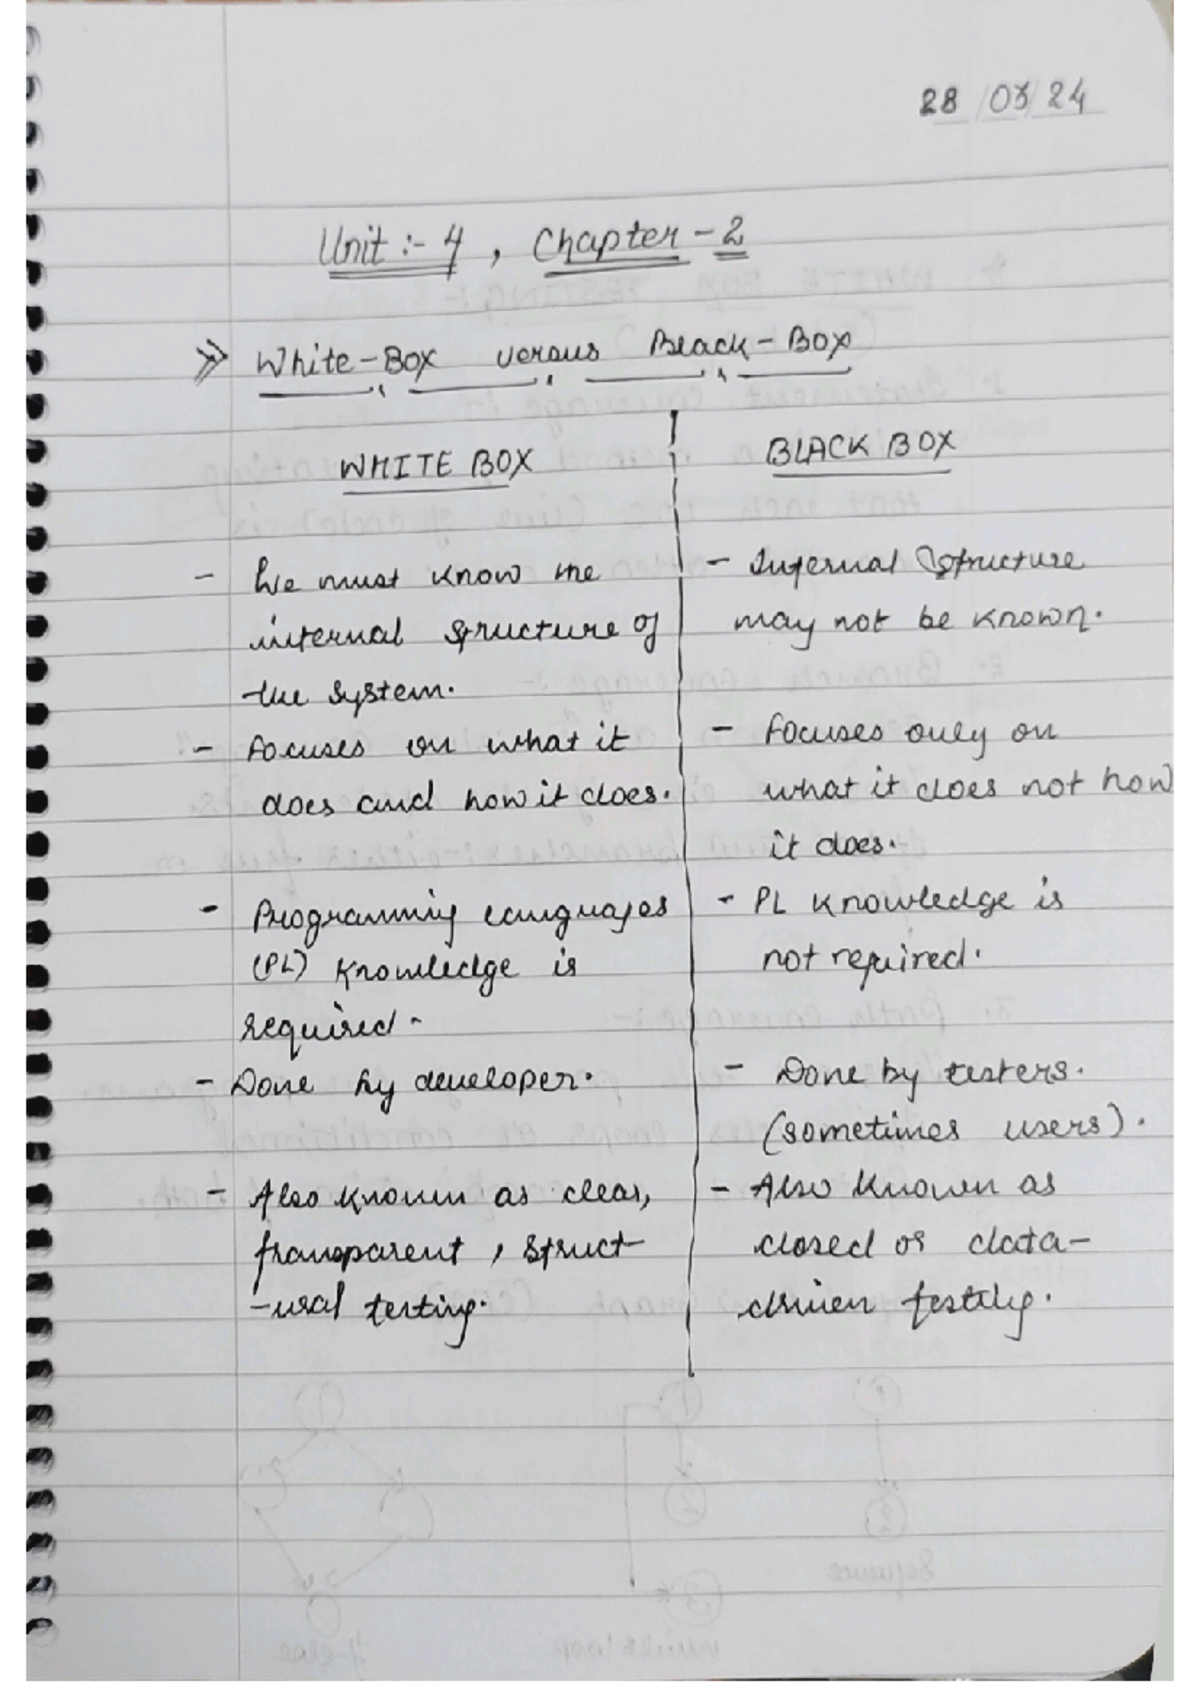 28/03/24
Unit :- 4, Chapter - 2
>> White-Box versus Black-Box
WHITE BOX
- We must know the
internal structure of
the system.
- focuses on what it
does and how it does.
- Programming languages
(PL) knowledge is
required.
- Done by developer.
- Also known as clear,
transparent, struct-
-ural testing.
BLACK BOX
- Internal structure
may not be known.
- focuses only on
what it does not how
it does.
- PL knowledge is
not required.
- Done by testers.
(sometimes users).
- Also known as
closed or data-
driven testing.